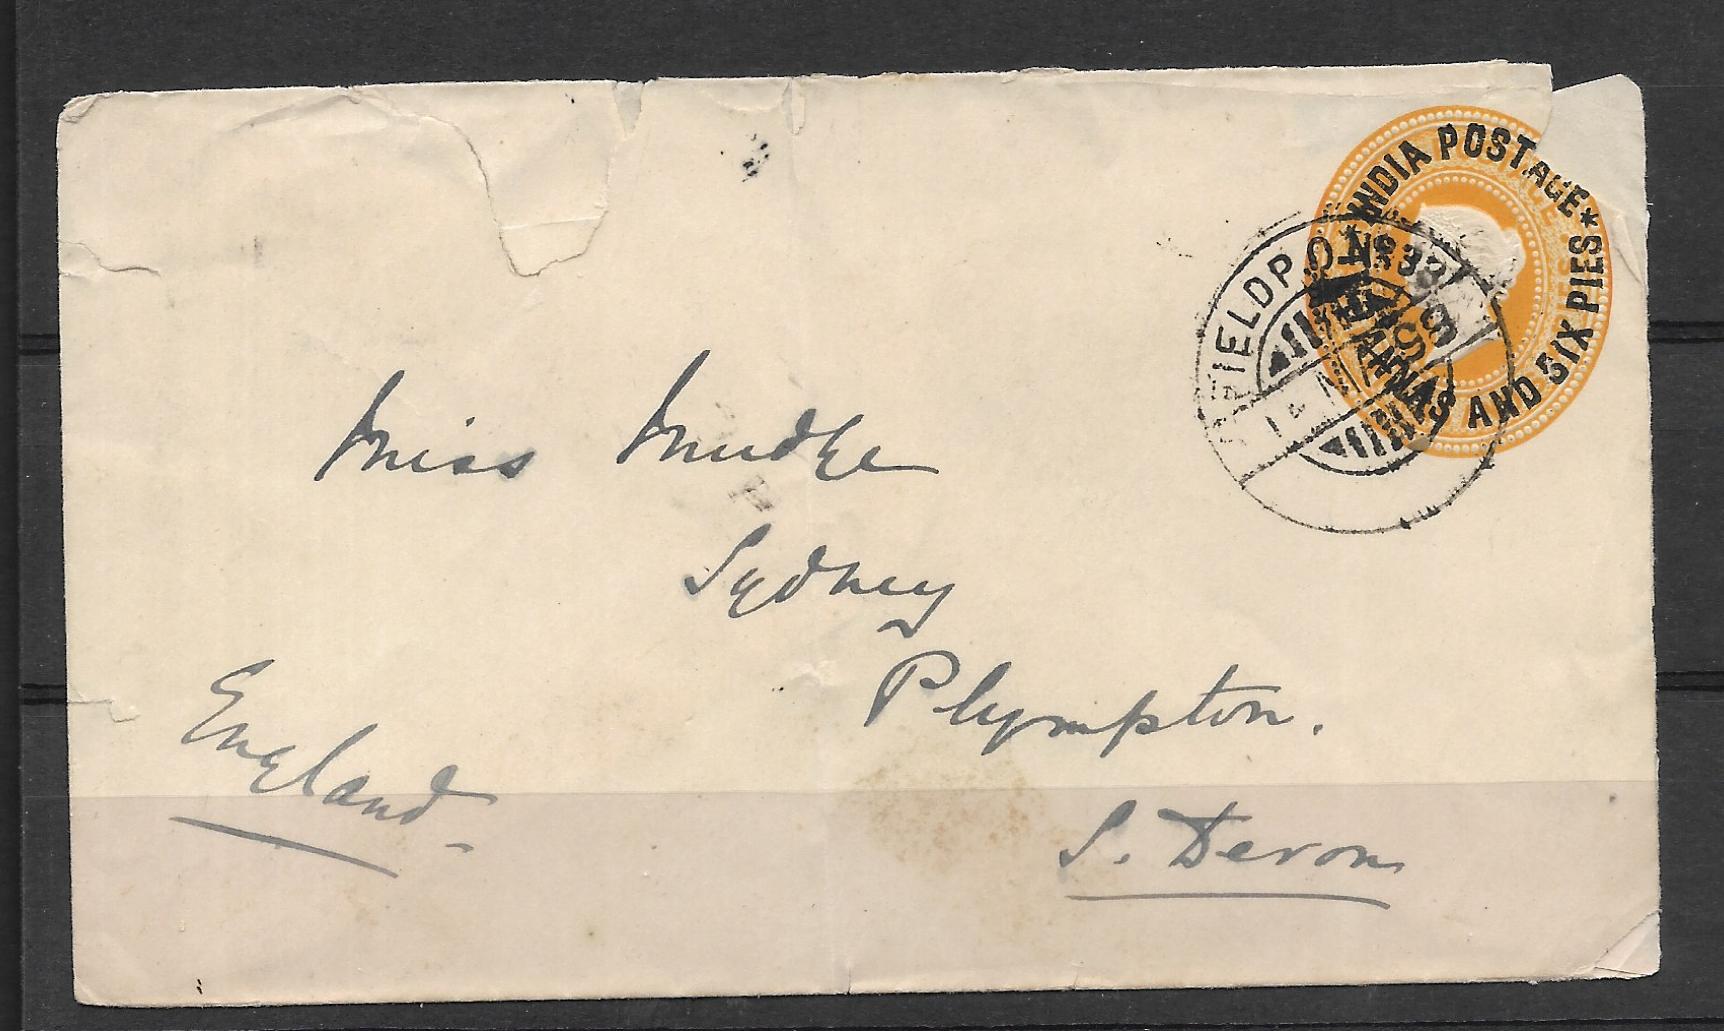 INDIA POSTAGE
ANNAS AND SIX PIES
FIELD P.O. No 33
Miss Mudge
Sydney
Plympton.
S. Devon
England